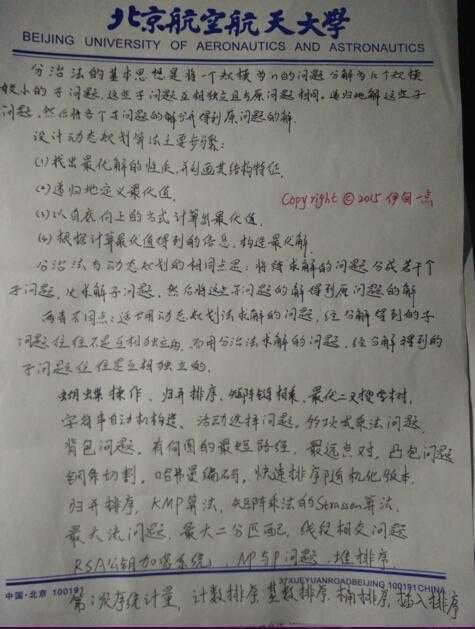 北京航空航天大学
BEIJING UNIVERSITY OF AERONAUTICS AND ASTRONAUTICS
分治法的基本思想是将一个规模为n的问题分解为k个规模
较小的子问题,这些子问题互相独立且与原问题相同,递归地解这些子
问题,然后将各个子问题的解合并得到原问题的解.
设计动态规划算法主要步骤:
(1)找出最优解的性质,并刻画其结构特征.
(2)递归地定义最优值.
(3)以自底向上的方式计算出最优值.
Copyright © 2015 伊甸一点
(4)根据计算最优值得到的信息,构造最优解.
分治法与动态规划的相同点是:将待求解的问题分成若干个
子问题,先求解子问题,然后将这些子问题的解得到原问题的解
两者不同点:适合用动态规划法求解的问题,经分解得到的子
问题往往不是互相独立的,而用分治法求解的问题,经分解得到的
子问题往往是互相独立的.
蝴蝶操作、归并排序,矩阵链相乘,最优二叉搜索树.
字符串自动机构造、活动选择问题,多项式乘法问题.
背包问题,有向图的最短路径,最远点对,凸包问题
钢条切割,哈弗曼编码,快速排序随机化版本.
归并排序,KMP算法,矩阵乘法的Strassen算法.
最大流问题,最大二分匹配,线段相交问题
RSA公钥加密系统,NP与P问题 堆排序.
中国·北京 100191
XUEYUANROADBEIJING 100191CHINA
第i次序统计量,计数排序.基数排序.桶排序,插入排序